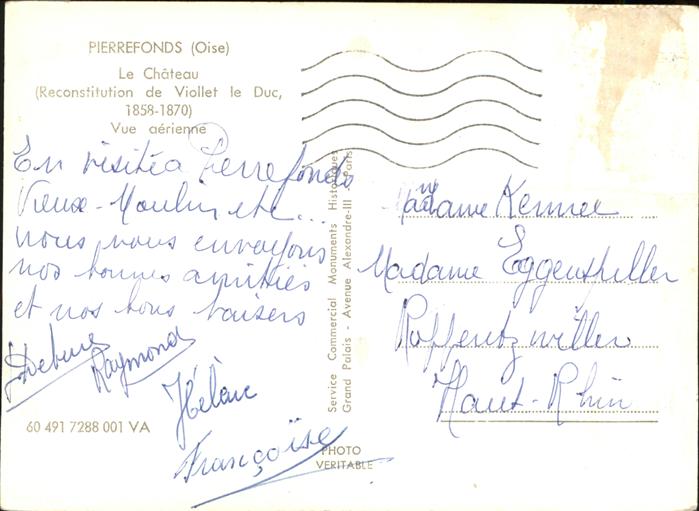 PIERREFONDS (Oise)
Le Château
(Reconstitution de Viollet le Duc,
1858-1870)
Vue aérienne
En visite à Pierrefonds
Vieux-Moulin etc...
nous vous envoyons
nos bonnes amitiés
et nos bons baisers
Raymond
Hélène
Françoise
60 491 7288 001 VA
Service Commercial Monuments Historiques
Grand Palais - Avenue Alexandre-III - Paris
PHOTO
VERITABLE
Madame
Madame Eggenspiller
Roppentzwiller
Haut-Rhin